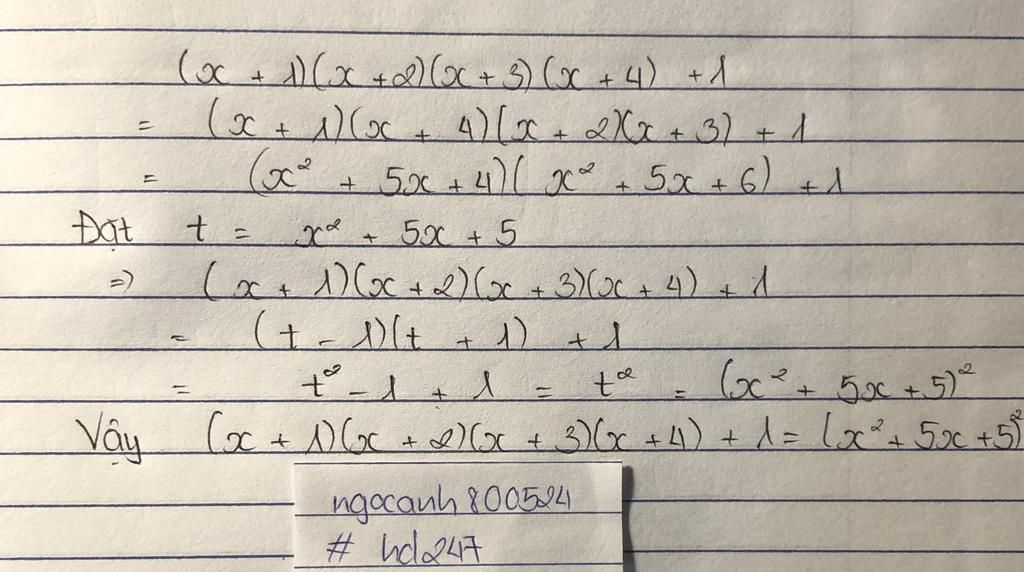 (x + 1)(x + 2)(x + 3)(x + 4) + 1
= (x + 1)(x + 4)(x + 2)(x + 3) + 1
= (x² + 5x + 4)(x² + 5x + 6) + 1
Đặt t = x² + 5x + 5
=> (x + 1)(x + 2)(x + 3)(x + 4) + 1
= (t - 1)(t + 1) + 1
= t² - 1 + 1 = t² = (x² + 5x + 5)²
Vậy (x + 1)(x + 2)(x + 3)(x + 4) + 1 = (x² + 5x + 5)²
ngocanh800524
# hd247